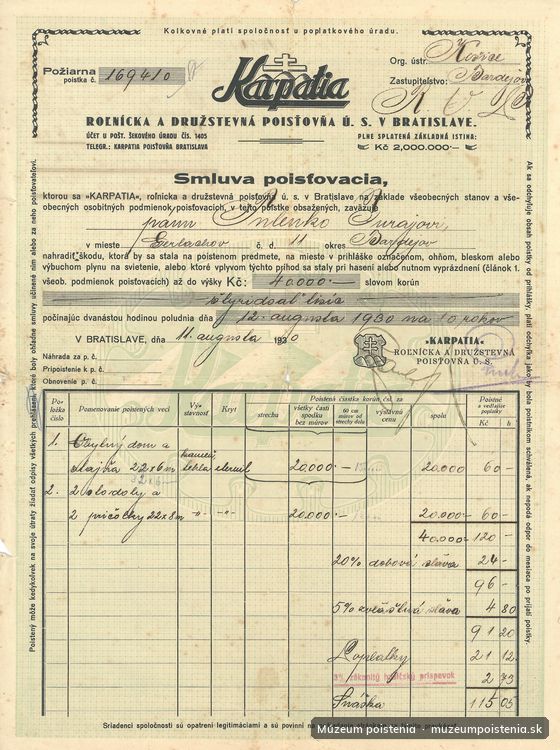 Kolkovné platí spoločnosť u poplatkového úradu.
Požiarna
poistka č. 169410
Karpatia
Org. ústr. Košice
Zastupiteľstvo: Bardejov
ROĽNÍCKA A DRUŽSTEVNÁ POISŤOVŇA Ú. S. V BRATISLAVE.
ÚČET U POŠT. ŠEKOVÉHO ÚRADU ČÍS. 1405
TELEGR.: KARPATIA POISŤOVŇA BRATISLAVA
PLNE SPLATENÁ ZÁKLADNÁ ISTINA:
Kč 2,000.000·—
Smluva poisťovacia,
ktorou sa «KARPATIA», roľnícka a družstevná poisťovňa ú. s. v Bratislave na základe všeobecných stanov a vše-
obecných osobitných podmienok poisťovacích, v tejto poistke obsažených, zaväzuje
pánu
v mieste Gerlachov č. d. 11 okres Bardejov
nahradiť škodu, ktorá by sa stala na poistenom predmete, na mieste v prihláške označenom, ohňom, bleskom alebo
výbuchom plynu na svietenie, alebo ktoré vplyvom týchto príhod sa staly pri hasení alebo nutnom vyprázdnení (článok 1.
všeob. podmienok poisťovacích) až do výšky Kč: 40000.— slovom korún
počínajúc dvanástou hodinou poludnia dňa 12. augusta 1930 na 10 rokov
V BRATISLAVE, dňa 11. augusta 1930
Náhrada za p. č.
Pripoistenie k p. č.
Obnovenie p. č.
„KARPATIA“
ROĽNÍCKA A DRUŽSTEVNÁ
POISŤOVŇA Ú. S.
Po-
ložka
číslo
Pomenovanie poistených vecí
Vý-
stavnosť
Kryt
Poistená čiastka korún čsl. za
strechu
všetky časti
spodku
bez múrov
60 cm
múrov od
strechy dolu
výslavnú
cenu
spolu
Poistné
a vedľajšie
poplatky
Kč h
1. Obytný dom a
22x6m 20.000.— 20.000 60—
2.
2 22x8m 20.000.— 20.000.— 60—
40.000— 120—
20% dobová sľava 24—
96—
5% zvláštna sľava 4 80
91 20
Poplatky 21 12
3% zákonitý hasičský príspevok 2 73
115 05
Sriadenci spoločnosti sú opatrení legitimáciami a sú povinní
Poistený môže kedykoľvek na svoje útraty žiadať odpisy všetkých prehlásení, ktoré boly ohľadne smluvy učinené ním alebo za neho poisťovateľovi.
Ak sa odchyľuje obsah poistky od prihlášky, platí odchylka jako by bola poistencom schválená, ak nepodá odpor do mesiaca po prijatí poistky.
Múzeum poistenia - muzeumpoistenia.sk